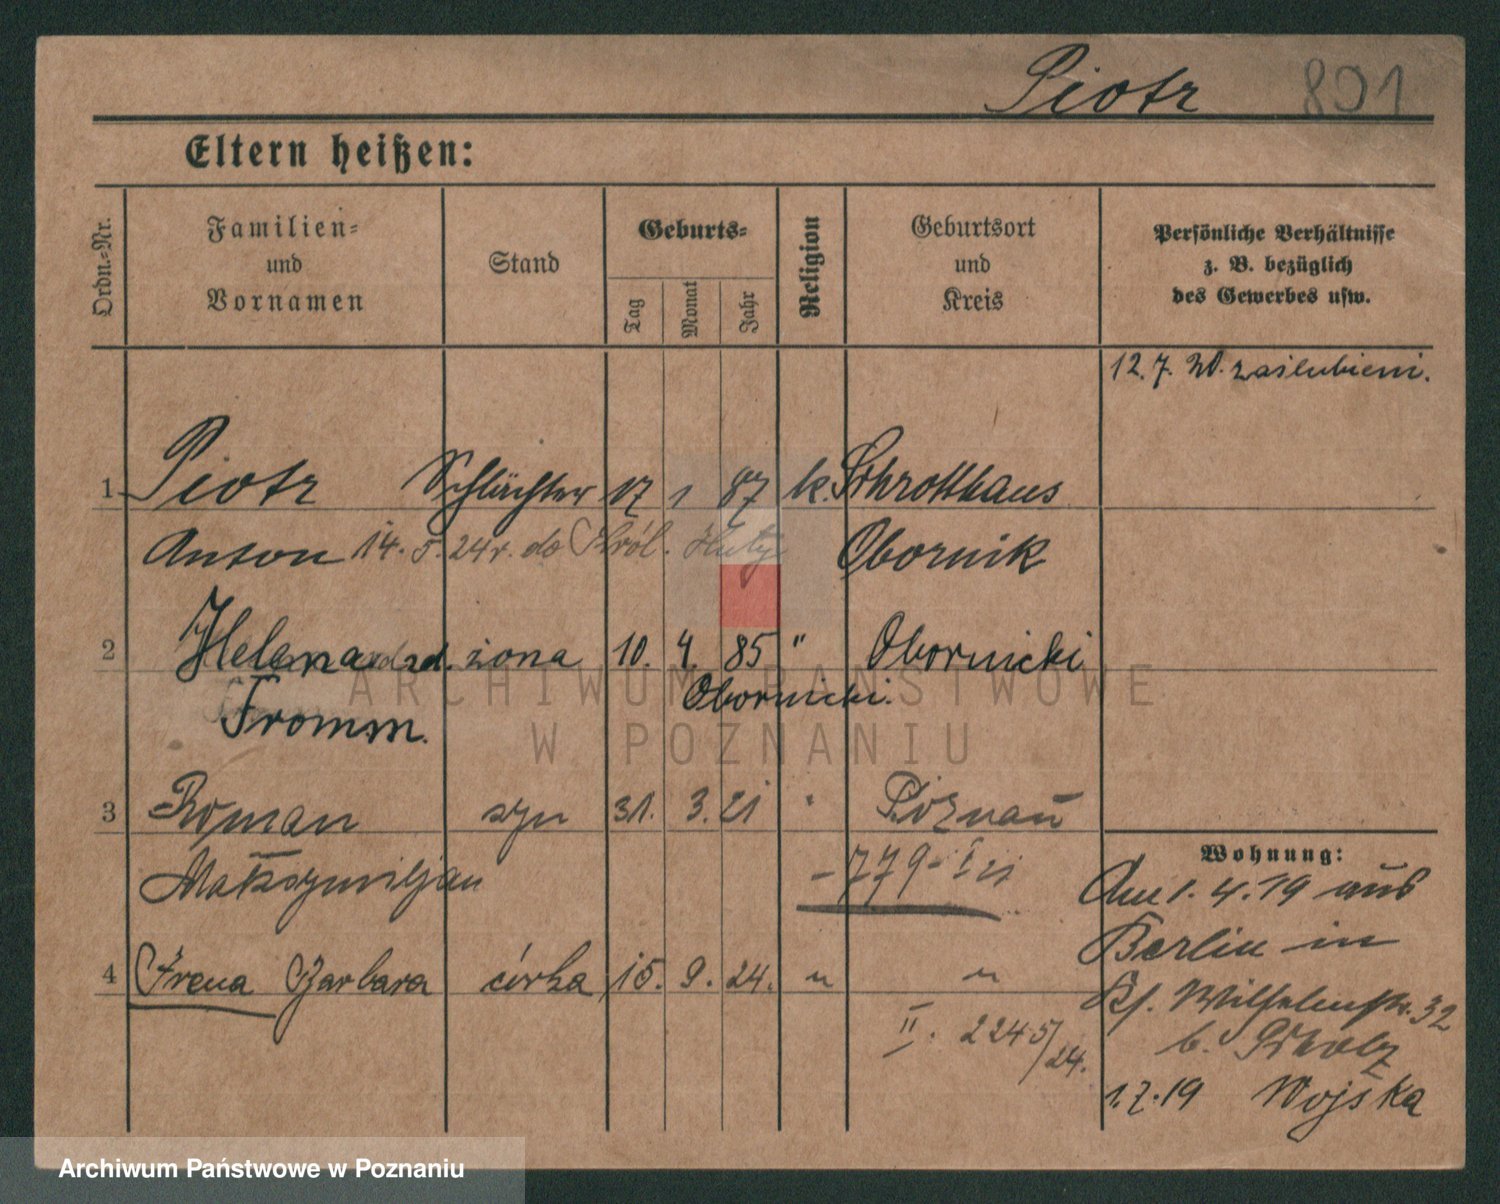 Piotr 801
Eltern heißen:
Ordn.-Nr.
Familien- und Vornamen
Stand
Geburts-
Tag Monat Jahr
Religion
Geburtsort und Kreis
Persönliche Verhältnisse z. B. bezüglich des Gewerbes usw.
12.7. 20. zaślubieni.
1 Piotr Schlächter 17 1 87 k. Schrotthaus
Anton 14. 5. 24 r. do Król. Huty Obornik
2 Helena zd. żona 10. 4. 85 " Obornicki
Fromm. Obornicki.
3 Roman syn 31. 3. 21 " Poznań
Maksymiljan - 779 - I 21
Wohnung:
Am 1. 4. 19 aus
Berlin in
4 Irena Barbara córka 15. 9. 24. " "
Kf. Wilhelmstr. 32
II. 2245/24.
b. Scholz
1.7.19 Wojska
ARCHIWUM PAŃSTWOWE
W POZNANIU
Archiwum Państwowe w Poznaniu